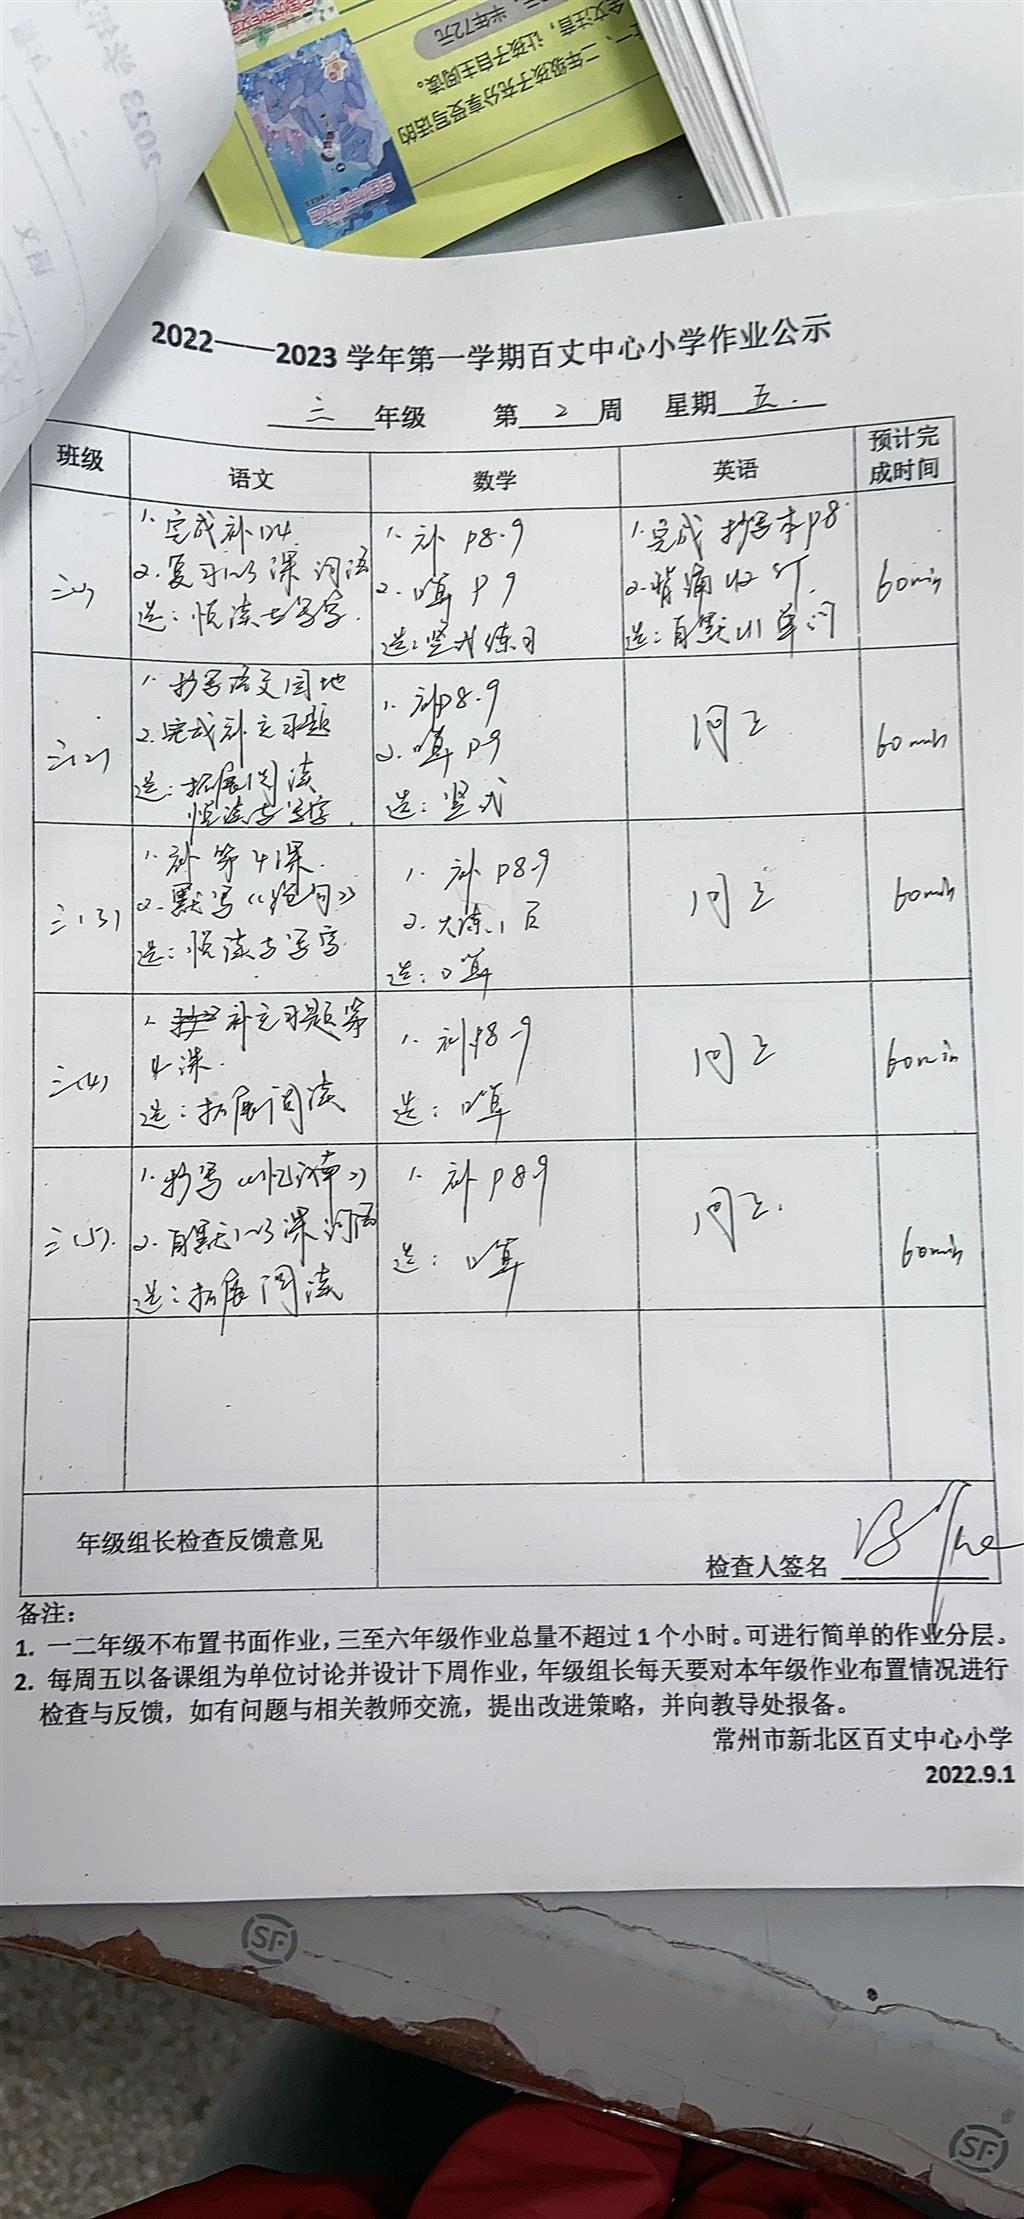 二年级孩子充分享受写话的
全文注音，让孩子自主阅读。
半年72元
2022——2023 学年第一学期百丈中心小学作业公示
三 年级 第 2 周 星期 五.
班级 语文 数学 英语 预计完成时间
三(1)
1. 完成补14.
2. 复习1~3课词语
选：悦读与写字.
1. 补 P8-9
2. 口算 P9
选：竖式练习
1. 完成 抄写本P8.
2. 背诵 U2 ST
选：自默U1单词
60min
三(2)
1. 抄写语文园地
2. 完成补充习题
选：拓展阅读
悦读与写字.
1. 补P8-9
2. 口算P9
选：竖式
同上
60min
三(3)
1. 补 第4课.
2. 默写《绝句》
选：悦读与写字.
1. 补 P8-9
2. 大练1页
选：口算
同上
60min
三(4)
1. 补充习题第
4课.
选：拓展阅读
1. 补P8-9
选：口算
同上
60min
三(5).
1. 抄写《忆江南》
2. 自默1~3课词语
选：拓展阅读
1. 补P8-9
选：口算
同上.
60min
年级组长检查反馈意见
检查人签名
备注：
1. 一二年级不布置书面作业，三至六年级作业总量不超过 1 个小时。可进行简单的作业分层。
2. 每周五以备课组为单位讨论并设计下周作业，年级组长每天要对本年级作业布置情况进行
检查与反馈，如有问题与相关教师交流，提出改进策略，并向教导处报备。
常州市新北区百丈中心小学
2022.9.1
SF
SF